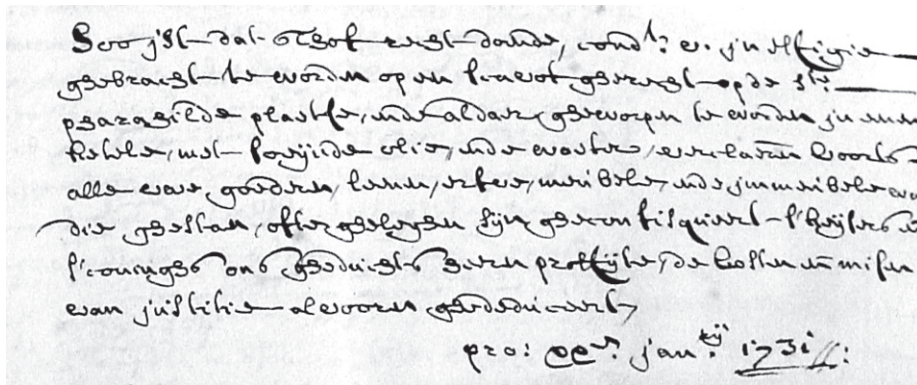 Soo jst dat thof recht doende, cond.t v. jn effigie
gebracht te worden op een schavot gerecht op de S.te
pharahilde plaetse, ende aldaer geworpen te worden jn eenen
ketele, met ziedende olie, ende water, verclaren voorts
alle uwe goederen, leenen, erfve, meubele, ende jmmeubele
die gestaen, ofte gelegen sijn geconfisquiert t'
s'conincgs ons geduchts heere proffijte, de costen ende misen
van justitie alvoren gededuceert,
pro: jan.rij 1731